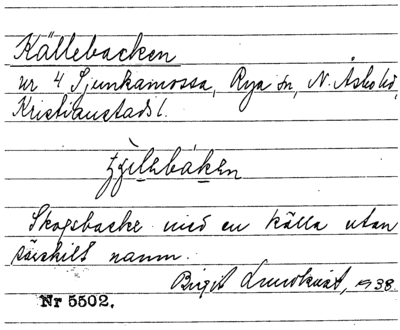 Källebacken
nr 4 Sjunkamossa, Rya sn, N. Åsbo hd,
Kristianstads l.
Skogsbacke med en källa utan
särskilt namn.
Birgit Lundkvist, 1938.
Nr 5502.